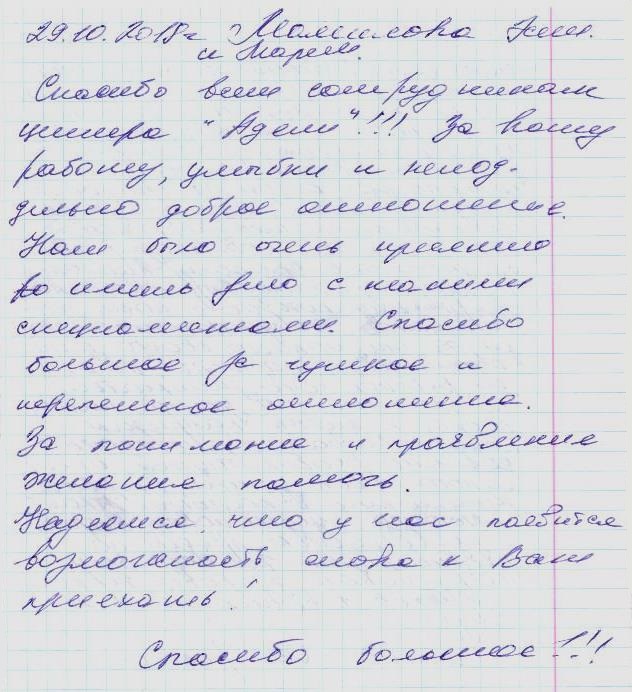 29.10.2018г Мамилова Эли.
и Марии.
Спасибо всем сотрудникам
центра "Адели"!!! За вашу
работу, улыбки и непод-
дельно доброе отношение.
Нам было очень приятно
иметь дело с такими
специалистами. Спасибо
большое за чуткое и
отношение.
За понимание и проявление
желания помочь.
Надеемся, что у нас появится
возможность снова к Вам
приехать!
Спасибо большое!!!